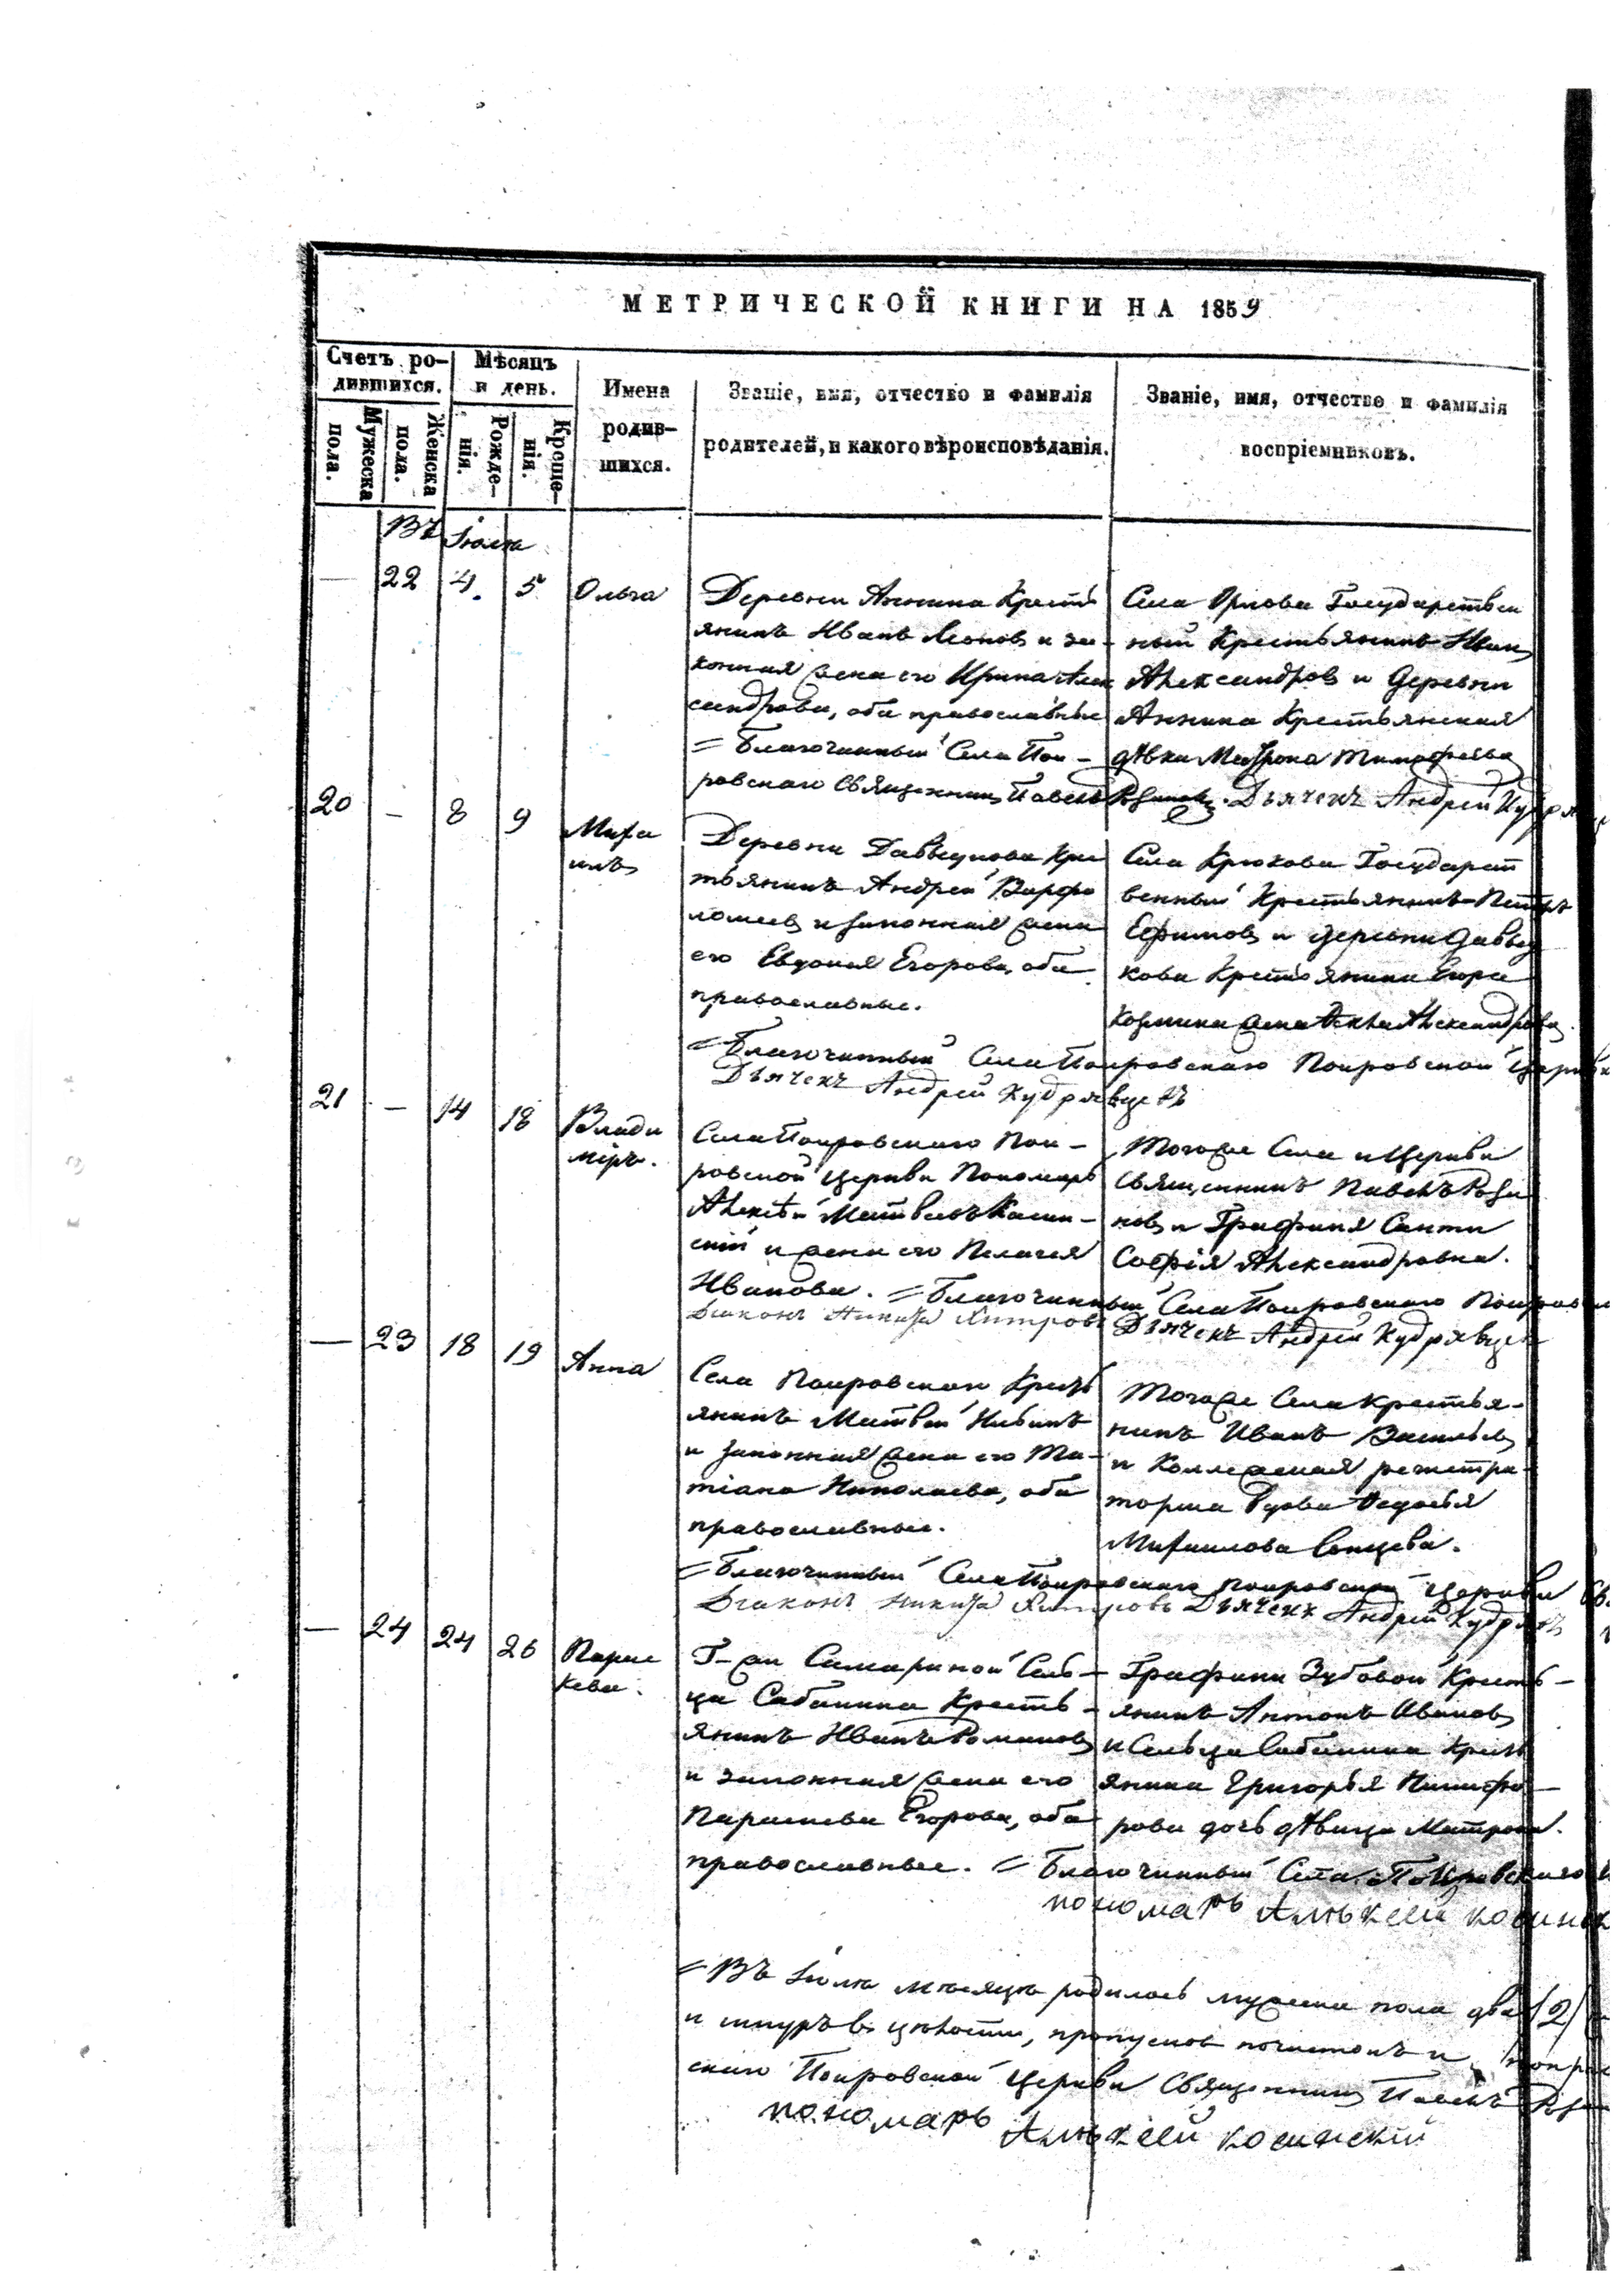 МЕТРИЧЕСКОЙ КНИГИ НА 1859
Счетъ ро-
дившихся.
Мужеска
пола.
Женска
пола.
Мѣсяцъ
и день.
Рожде-
нія.
Креще-
нія.
Имена
родив-
шихся.
Званіе, имя, отчество и фамилія
родителей, и какого вѣроисповѣданія.
Званіе, имя, отчество и фамилія
воспріемниковъ.
Въ Іюлѣ
— 22 4. 5 Ольга
Деревни Аннина Кресть
янинъ Иванъ Леоновъ и за-
конная жена его Ирина Алек
сандрова, оба православные
= Благочинный Села Пок-
ровскаго Священникъ Павелъ
Села Орлова Государствен
ный Крестьянинъ Иванъ
Александровъ и деревни
Аннина Крестьянская
дѣвка Матрона Тимофеева
Дьячекъ Андрей
20 — 8 9 Миха
илъ
Деревни Крес
тьянинъ Андрей Варфо
ломеевъ и законная жена
его Евдокия Егорова, оба
православные.
Села Крюкова Государст
венный Крестьянинъ Петръ
Ефимовъ и деревни
кова Крестьянина Егора
жена Александрова.
= Благочинный Села Покровскаго Покровской Церкви
Дьячекъ Андрей Кудрявцевъ
21 — 14 18 Влади
міръ.
Села Покровскаго Пок-
ровской Церкви Пономарь
Алексѣй Матвеевъ Касин-
скій и жена его Пелагея
Иванова. = Благочинный Села Покровскаго
Тогоже Села и Церкви
Священникъ Павелъ
новъ и Графиня Санти
Софія Александровна.
Діаконъ Никита Дьячекъ Андрей Кудрявцевъ
— 23 18 19 Анна
Села Покровскаго Кресть
янинъ Матвей
и законная жена его Та-
тіана Николаева, оба
православные.
Тогоже Села Крестья-
нинъ Иванъ Васильевъ
и Коллежская регистра-
торша Вдова
Михаилова
= Благочинный Села Покровскаго Покровской Церкви
Діаконъ Никита Дьячекъ Андрей
— 24 24 26 Парас
кева.
Г-жи Самариной Сель-
ца Сабанина Кресть-
янинъ Иванъ Романовъ
и законная жена его
Параскева Егорова, оба
православные. = Благочинный Села Покровскаго
Графини Зубовой Кресть-
янинъ Антонъ Ивановъ
и Сельца Сабанина Кресть
янина Григорья Никифо-
рова дочь дѣвица Матрона.
пономарь Алѣксей
= Въ Іюлѣ мѣсяцѣ родилось мужеска пола два (2)
и шнуръ въ цѣлости, пропусковъ почистокъ и
скаго Покровской Церкви Священникъ Павелъ
пономарь Алѣксей косинскій